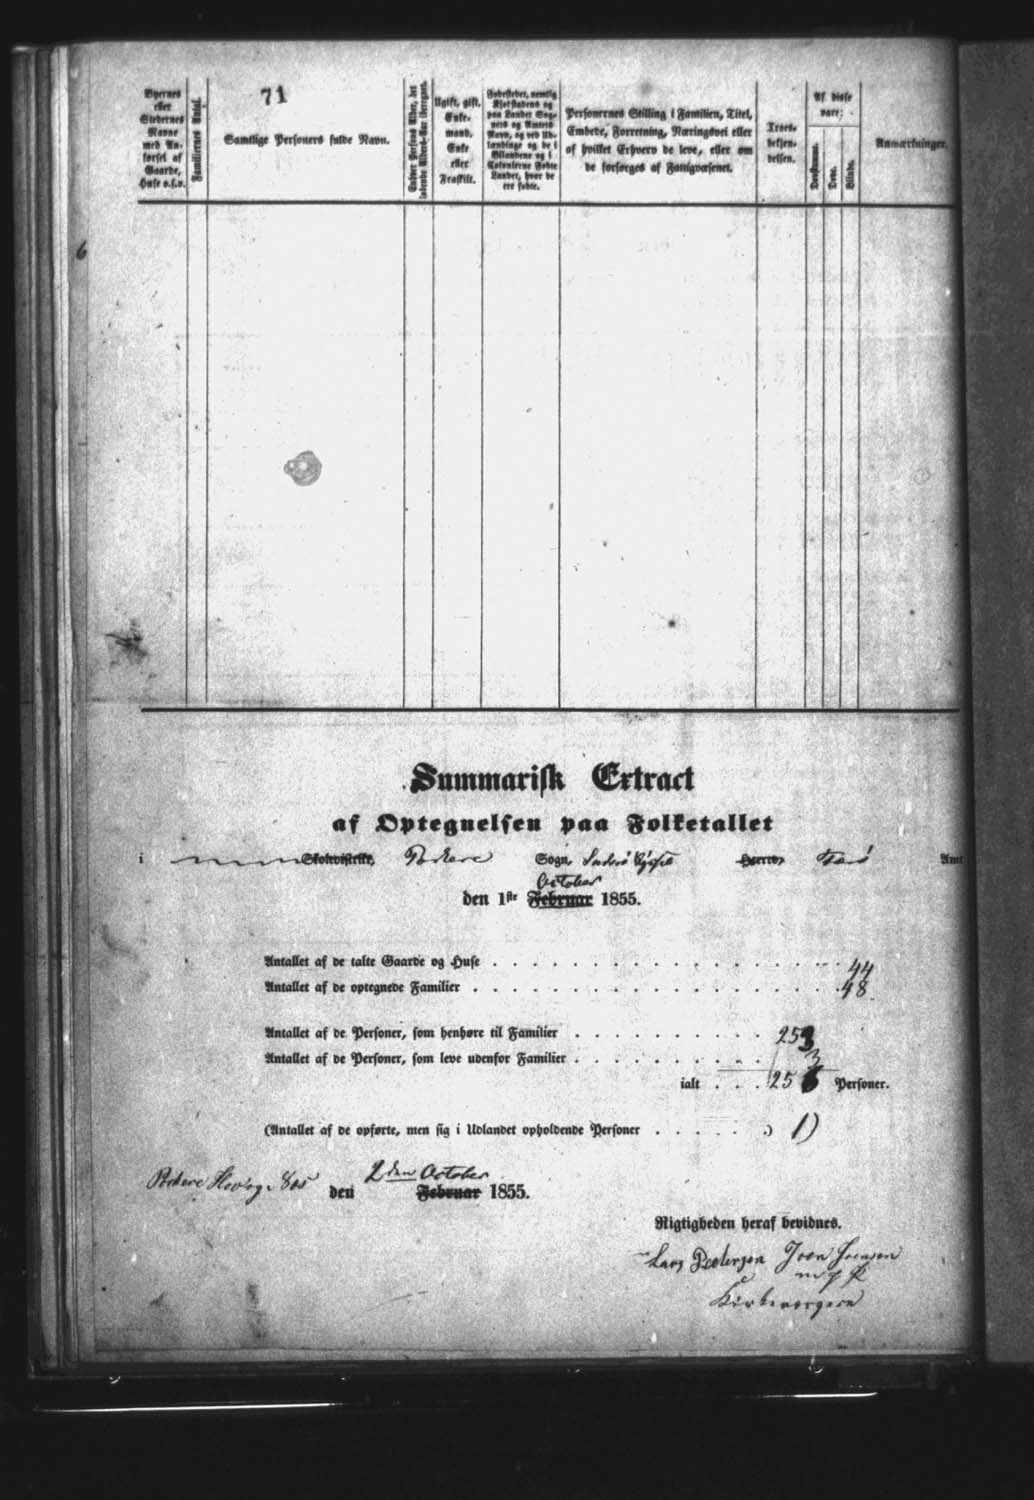 71
Byernes eller Stedernes Navne med Anførsel af Gaarde, Huse o.s.v.
Familiernes Antal.
Samtlige Personers fulde Navn.
Enhver Persons Alder, det løbende Alders-Aar iberegnet.
Ugift, gift, Enkemand, Enke eller Fraskilt.
Fødestedet, nemlig Kjøbstadens og paa Landet Sognets og Amtets Navn, og ved Udlændinge og de i Bilandene og i Colonierne Fødte Landet, hvor de ere fødte.
Personernes Stilling i Familien, Titel, Embede, Forretning, Næringsvei eller af hvilket Erhverv de leve, eller om de forsørges af Fattigvæsenet.
Troesbekjendelsen.
Af disse vare:
Døvstumme.
Døve.
Blinde.
Anmærkninger.
6
Summarisk Extract
af Optegnelsen paa Folketallet
i Skoledistrikt, Porkere Sogn, Suderö Syssel Herred, Færö Amt
October
den 1ste Februar 1855.
Antallet af de talte Gaarde og Huse 44
Antallet af de optegnede Familier 48
Antallet af de Personer, som henhøre til Familier 253
Antallet af de Personer, som leve udenfor Familier 3
ialt 256 Personer.
(Antallet af de opførte, men sig i Udlandet opholdende Personer .) 1)
2den October
Porkere Hov og den Februar 1855.
Rigtigheden heraf bevidnes.
Lars Pedersen Joen
Kirkeværgere